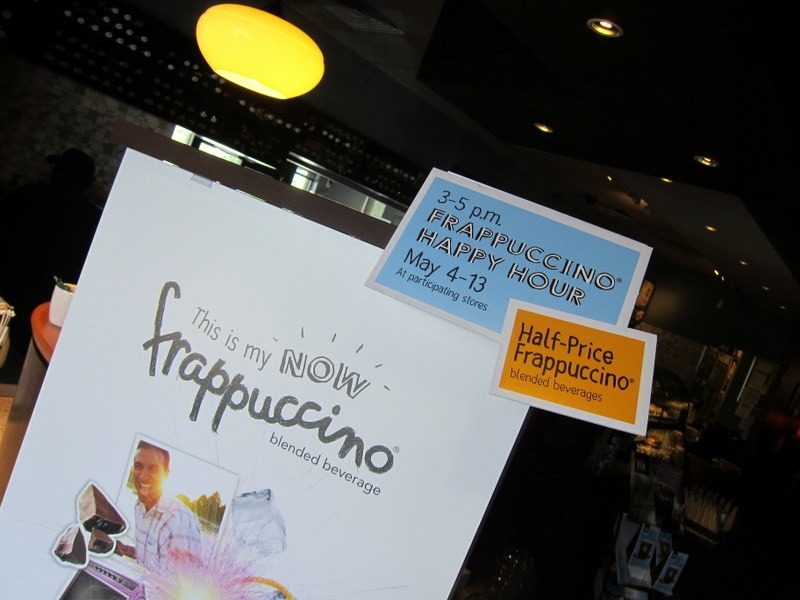 3-5 p.m.
FRAPPUCCINO®
HAPPY HOUR
May 4-13
At participating stores
Half-Price
Frappuccino®
blended beverages
This is my NOW
frappuccino®
blended beverage